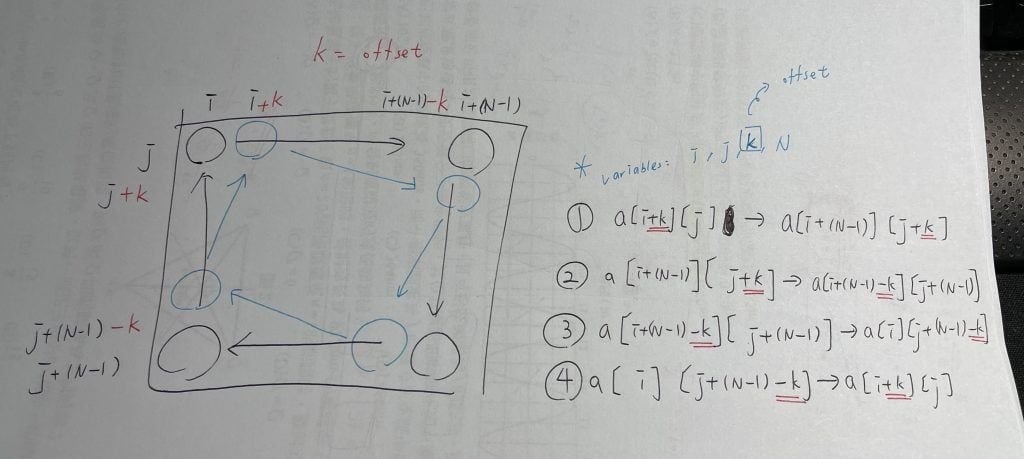 k = offset
i i+k i+(N-1)-k i+(N-1)
j
j+k
j+(N-1)-k
j+(N-1)
offset
* variables: i, j, k, N
① a[i+k][j] → a[i+(N-1)][j+k]
② a[i+(N-1)][j+k] → a[i+(N-1)-k][j+(N-1)]
③ a[i+(N-1)-k][j+(N-1)] → a[i][j+(N-1)-k]
④ a[i][j+(N-1)-k] → a[i+k][j]